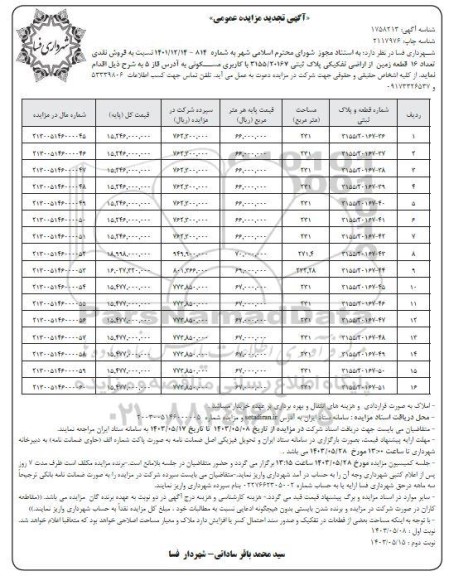 «آگهی تجدید مزایده عمومی»
شهرداری فسا
شناسه آگهی: ۱۷۵۸۲۱۳
شناسه چاپ: ۲۱۱۷۹۷۶
شهرداری فسا در نظر دارد: به استناد مجوز شورای محترم اسلامی شهر به شماره ۸۱۴ - ۱۴۰۱/۱۲/۱۴ نسبت به فروش نقدی
تعداد ۱۶ قطعه زمین از اراضی تفکیکی پلاک ثبتی ۳۱۵۵/۲۰۱۶۷ با کاربری مسکونی به آدرس فاز ۵ به شرح ذیل اقدام
نماید. از کلیه اشخاص حقیقی و حقوقی جهت شرکت در مزایده دعوت به عمل می آید. تلفن تماس جهت کسب اطلاعات ۵۳۳۳۹۸۰۶
و ۰۹۱۷۳۳۲۶۵۳۷
ردیف شماره قطعه و پلاک ثبتی مساحت (متر مربع) قیمت پایه هر متر مربع (ریال) سپرده شرکت در مزایده (ریال) قیمت کل (پایه) شماره مال در مزایده
۱ ۳۱۵۵/۲۰۱۶۷-۳۶ ۲۳۱ ۶۶,۰۰۰,۰۰۰ ۷۶۲,۳۰۰,۰۰۰ ۱۵,۲۴۶,۰۰۰,۰۰۰ ۲۱۳۰۰۰۵۱۴۶۰۰۰۰۴۵
۲ ۳۱۵۵/۲۰۱۶۷-۳۷ ۲۳۱ ۶۶,۰۰۰,۰۰۰ ۷۶۲,۳۰۰,۰۰۰ ۱۵,۲۴۶,۰۰۰,۰۰۰ ۲۱۳۰۰۰۵۱۴۶۰۰۰۰۴۶
۳ ۳۱۵۵/۲۰۱۶۷-۳۸ ۲۳۱ ۶۶,۰۰۰,۰۰۰ ۷۶۲,۳۰۰,۰۰۰ ۱۵,۲۴۶,۰۰۰,۰۰۰ ۲۱۳۰۰۰۵۱۴۶۰۰۰۰۴۷
۴ ۳۱۵۵/۲۰۱۶۷-۳۹ ۲۳۱ ۶۶,۰۰۰,۰۰۰ ۷۶۲,۳۰۰,۰۰۰ ۱۵,۲۴۶,۰۰۰,۰۰۰ ۲۱۳۰۰۰۵۱۴۶۰۰۰۰۴۸
۵ ۳۱۵۵/۲۰۱۶۷-۴۰ ۲۳۱ ۶۶,۰۰۰,۰۰۰ ۷۶۲,۳۰۰,۰۰۰ ۱۵,۲۴۶,۰۰۰,۰۰۰ ۲۱۳۰۰۰۵۱۴۶۰۰۰۰۴۹
۶ ۳۱۵۵/۲۰۱۶۷-۴۱ ۲۳۱ ۶۶,۰۰۰,۰۰۰ ۷۶۲,۳۰۰,۰۰۰ ۱۵,۲۴۶,۰۰۰,۰۰۰ ۲۱۳۰۰۰۵۱۴۶۰۰۰۰۵۰
۷ ۳۱۵۵/۲۰۱۶۷-۴۲ ۲۳۱ ۶۶,۰۰۰,۰۰۰ ۷۶۲,۳۰۰,۰۰۰ ۱۵,۲۴۶,۰۰۰,۰۰۰ ۲۱۳۰۰۰۵۱۴۶۰۰۰۰۵۱
۸ ۳۱۵۵/۲۰۱۶۷-۴۳ ۲۷۱,۴ ۷۰,۰۰۰,۰۰۰ ۹۴۹,۹۰۰,۰۰۰ ۱۸,۹۹۸,۰۰۰,۰۰۰ ۲۱۳۰۰۰۵۱۴۶۰۰۰۰۵۲
۹ ۳۱۵۵/۲۰۱۶۷-۴۴ ۲۳۲,۲۸ ۶۹,۰۰۰,۰۰۰ ۸۰۱,۳۶۶,۰۰۰ ۱۶,۰۲۷,۳۲۰,۰۰۰ ۲۱۳۰۰۰۵۱۴۶۰۰۰۰۵۳
۱۰ ۳۱۵۵/۲۰۱۶۷-۴۵ ۲۳۱ ۶۷,۰۰۰,۰۰۰ ۷۷۳,۸۵۰,۰۰۰ ۱۵,۴۷۷,۰۰۰,۰۰۰ ۲۱۳۰۰۰۵۱۴۶۰۰۰۰۵۴
۱۱ ۳۱۵۵/۲۰۱۶۷-۴۶ ۲۳۱ ۶۷,۰۰۰,۰۰۰ ۷۷۳,۸۵۰,۰۰۰ ۱۵,۴۷۷,۰۰۰,۰۰۰ ۲۱۳۰۰۰۵۱۴۶۰۰۰۰۵۵
۱۲ ۳۱۵۵/۲۰۱۶۷-۴۷ ۲۳۱ ۶۷,۰۰۰,۰۰۰ ۷۷۳,۸۵۰,۰۰۰ ۱۵,۴۷۷,۰۰۰,۰۰۰ ۲۱۳۰۰۰۵۱۴۶۰۰۰۰۵۶
۱۳ ۳۱۵۵/۲۰۱۶۷-۴۸ ۲۳۱ ۶۷,۰۰۰,۰۰۰ ۷۷۳,۸۵۰,۰۰۰ ۱۵,۴۷۷,۰۰۰,۰۰۰ ۲۱۳۰۰۰۵۱۴۶۰۰۰۰۵۷
۱۴ ۳۱۵۵/۲۰۱۶۷-۴۹ ۲۳۱ ۶۷,۰۰۰,۰۰۰ ۷۷۳,۸۵۰,۰۰۰ ۱۵,۴۷۷,۰۰۰,۰۰۰ ۲۱۳۰۰۰۵۱۴۶۰۰۰۰۵۸
۱۵ ۳۱۵۵/۲۰۱۶۷-۵۰ ۲۳۱ ۶۷,۰۰۰,۰۰۰ ۷۷۳,۸۵۰,۰۰۰ ۱۵,۴۷۷,۰۰۰,۰۰۰ ۲۱۳۰۰۰۵۱۴۶۰۰۰۰۵۹
۱۶ ۳۱۵۵/۲۰۱۶۷-۵۱ ۲۳۱ ۶۷,۰۰۰,۰۰۰ ۷۷۳,۸۵۰,۰۰۰ ۱۵,۴۷۷,۰۰۰,۰۰۰ ۲۱۳۰۰۰۵۱۴۶۰۰۰۰۶۰
- املاک به صورت قراردادی و هزینه های انتقال و بهره برداری بر عهده خریدار میباشد.
- محل دریافت اسناد مزایده: سامانه ستاد ایران به آدرس setadiran.ir و مزایده شماره ۲۰۰۳۰۰۵۱۴۶۰۰۰۰۰۵
- متقاضیان می بایست جهت دریافت اسناد شرکت در مزایده از تاریخ ۱۴۰۳/۰۵/۰۸ تا تاریخ ۱۴۰۳/۰۵/۱۷ به سامانه ستاد ایران مراجعه نمایند.
- مهلت ارایه پیشنهاد قیمت، بصورت بارگزاری در سامانه ستاد ایران و تحویل فیزیکی اصل ضمانت نامه به صورت پاکت شماره الف (حاوی ضمانت نامه) به دبیرخانه
شهرداری تا ساعت ۱۳:۰۰ مورخ ۱۴۰۳/۰۵/۲۸ می باشد.
- جلسه کمیسیون مزایده مورخ ۱۴۰۳/۰۵/۲۸ ساعت ۱۳:۱۵ برگزار می گردد و حضور متقاضیان در جلسه بلامانع است. برنده مزایده مکلف است ظرف مدت ۷ روز
پس از اعلام کتبی شهرداری وجه آن را به حساب در آمد شهرداری واریز نماید.
بنام سپرده شهرداری واریز نمایند.
- سایر موارد در اسناد مزایده و برگ پیشنهاد قیمت قید می گردد.- هزینه کارشناسی و هزینه درج آگهی در دو نوبت به عهده برنده گان مزایده می باشد.
- با توجه به اینکه مساحت بعضی از قطعات در تفکیک و صدور سند احتمال کسر یا افزایش دارد ملاک و معیار مساحت اصلاحی خواهد بود که متعاقبا اعلام خواهد شد.
نوبت اول: ۱۴۰۳/۰۵/۰۸
نوبت دوم: ۱۴۰۳/۰۵/۱۵
سید محمد باقر ساداتی- شهردار فسا